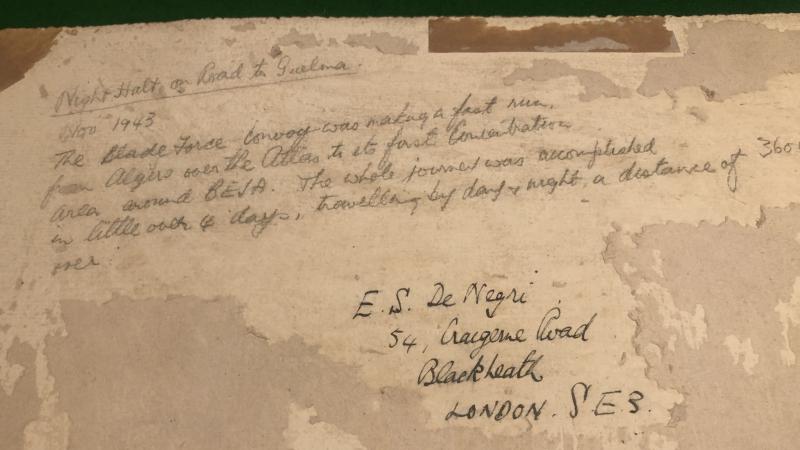 Night Halt on Road to Guelma.
Nov 1943
The Blade Force Convoy was making a fast run,
from Algiers over the Atlas to its first Concentration
area around BEJA. The whole journey was accomplished
in little over 4 days, travelling by day & night, a distance of 360
over.
E. S. De Negri
54, Craigerne Road
Blackheath
LONDON. S.E.3.